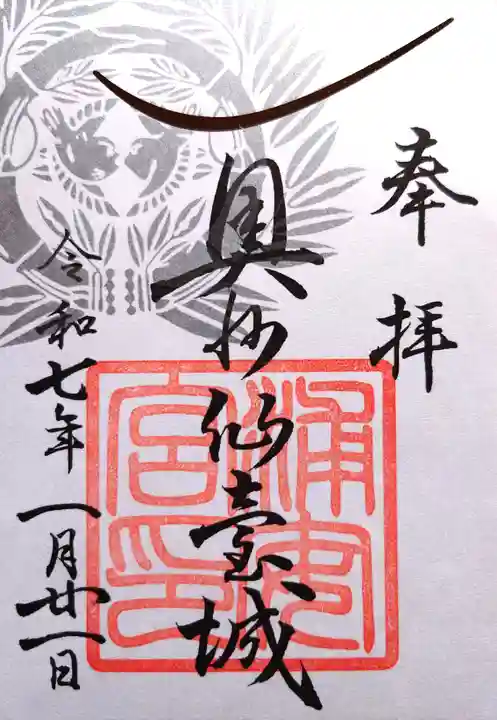 奉拝
奥州仙臺城
令和七年一月廿一日
浦安
宮印